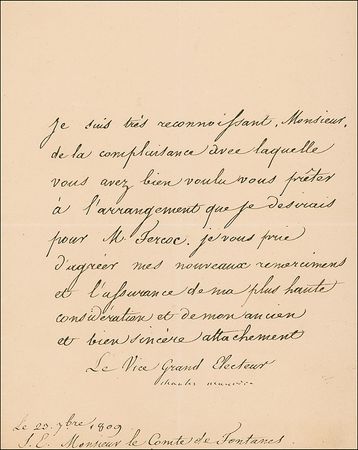 Je suis très reconnoissant, Monsieur,
de la complaisance avec laquelle
vous avez bien voulu vous prêter
à l'arrangement que je desirais
pour M. Fercoc. je vous prie
d'agréer mes nouveaux remercimens
et l'assurance de ma plus haute
considération et de mon ancien
et bien sincère attachement
Le Vice Grand Electeur
charles maurice
Le 23. 7bre 1809
S. E. Monsieur le Comte de Fontanes.